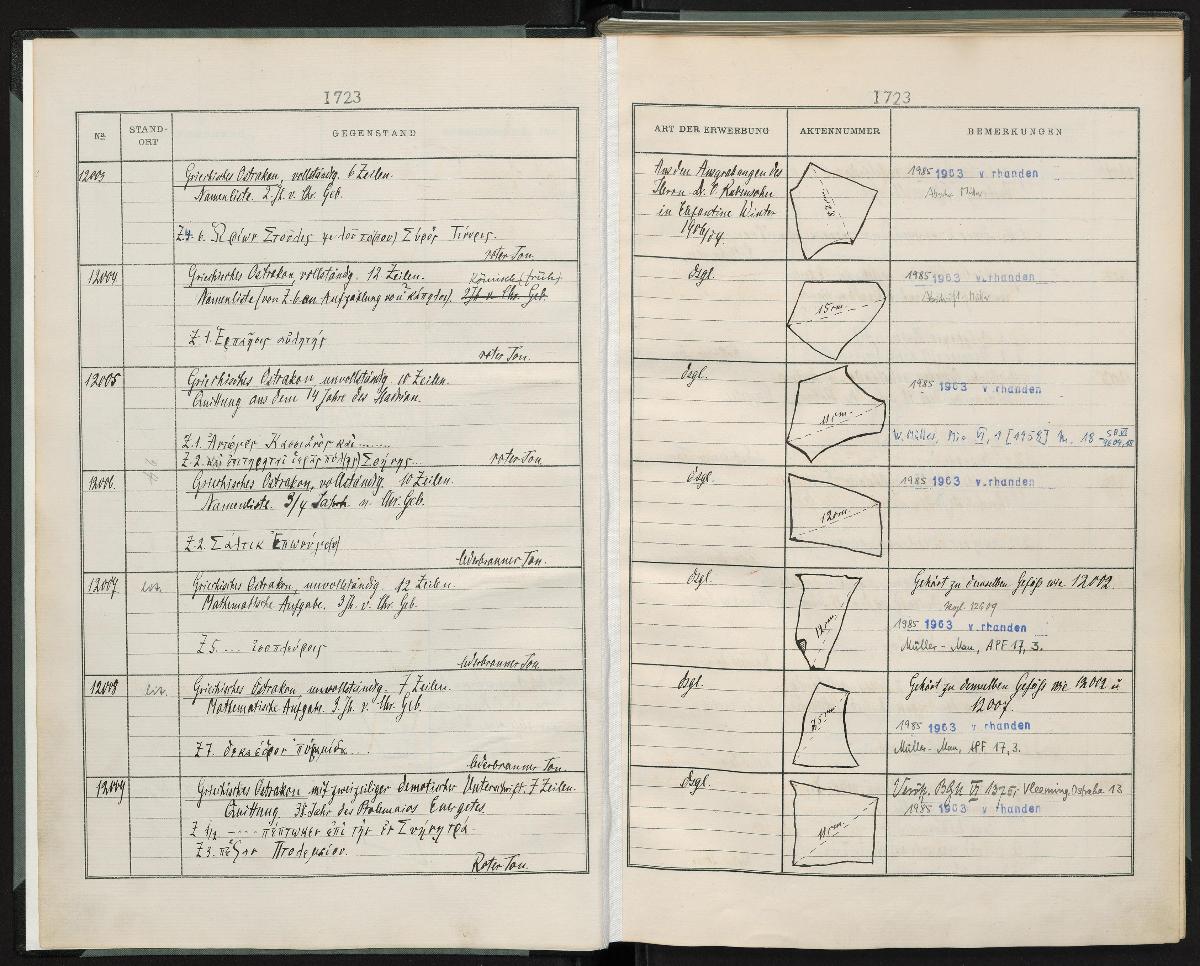 1723
Nº
STAND-
ORT
GEGENSTAND
12003
Griechisches Ostrakon, vollständig. 6 Zeilen.
Namenliste. 2. Jh. v. Chr. Geb.
roter Ton.
12004
Griechisches Ostrakon vollständig. 12 Zeilen.
Römisch (früh)
Namenliste (von Z. 6 an Aufzählung von
2 Jh v. Chr. Geb.
Z. 1.
roter Ton.
12005
Griechisches Ostrakon, unvollständig. 10 Zeilen.
Quittung aus dem 14 Jahre des Hadrian.
Z. 1.
Z. 2. καὶ
roter Ton
12006
Griechisches Ostrakon, vollständig. 10 Zeilen.
Namenliste. 3/4 Jahrh. n. Chr. Geb.
Z. 2.
lederbrauner Ton.
12007
Lit.
Griechisches Ostrakon, unvollständig. 12 Zeilen.
Mathematische Aufgabe. 3 Jh. v. Chr. Geb.
Z 5. .... ἰσοπλεύροις
lederbrauner Ton.
12008
Lit.
Griechisches Ostrakon, unvollständig. 7 Zeilen.
Mathematische Aufgabe. 3. Jh. v. Chr. Geb.
Z 7.
lederbrauner Ton
12009
Griechisches Ostrakon mit zweizeiliger demotischer Unterschrift. 7 Zeilen.
Quittung 38 Jahr des Ptolemaios Euergetes.
Z 1/2 ---- πέπτωκεν ἐπὶ τὴν ἐν Συήνῃ τρά-
Z 3. πεζαν Πτολεμαίου.
Roter Ton.
1723
ART DER ERWERBUNG
AKTENNUMMER
BEMERKUNGEN
Aus den Ausgrabungen des
Herrn Dr. O. Rubensohn
in Elefantine Winter
1906/07.
1985 1963 v.rhanden
Abschr. Müller
dsgl.
15 cm.
1985 1963 v.rhanden
Abschrift Müller
dsgl.
11 cm.
1985 1963 v.rhanden
W. Müller, Mio VI, 1 [1958] Nr. 18 = SB VI
9604, 18
dsgl.
12 cm.
1985 1963 v.rhanden
dsgl.
12 cm.
Gehört zu demselben Gefäß wie 12002.
vergl. 12609
1985 1963 v.rhanden
Müller-Mau, APF 17, 3.
dsgl.
7,5 cm
Gehört zu demselben Gefäß wie 12002 u
12007.
1985 1963 v.rhanden
Müller-Mau, APF 17, 3.
dsgl.
11 cm.
Veröff. BGU VI 1325; Vleeming Ostraka 13
1985 1963 v.rhanden